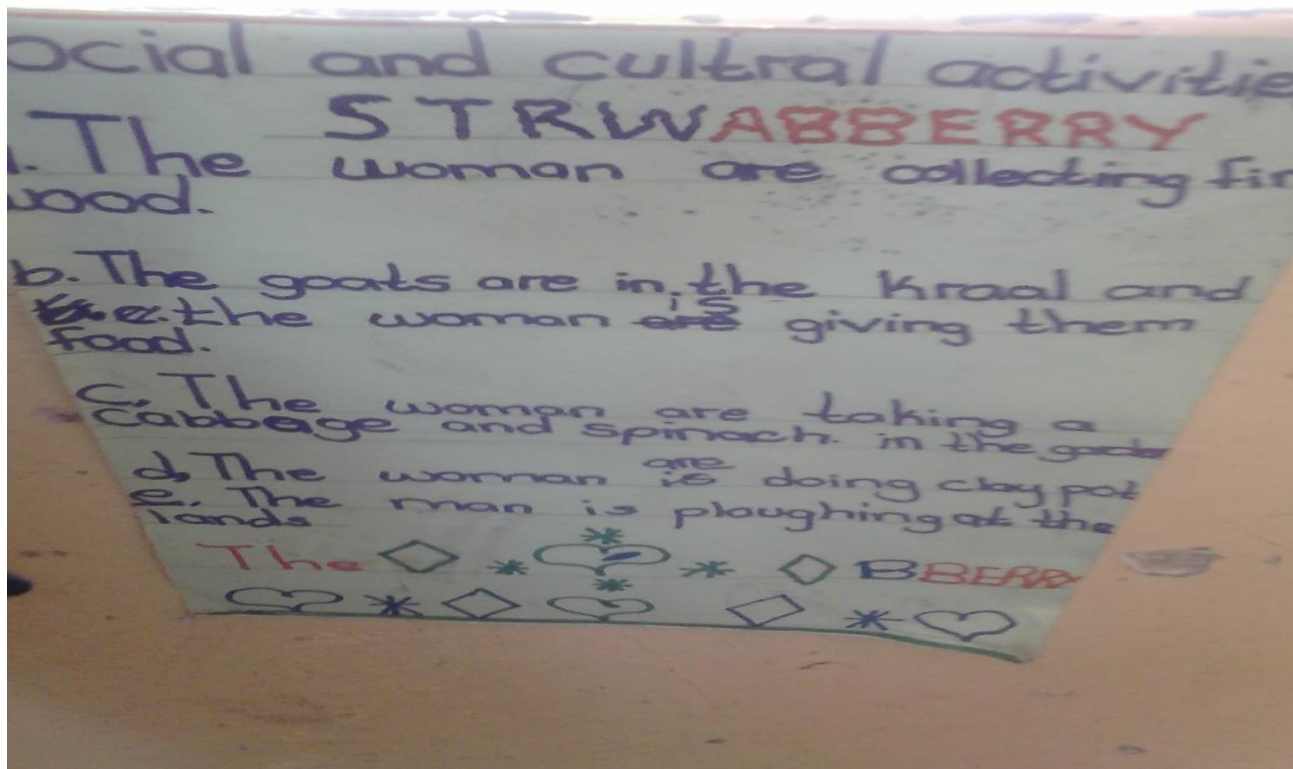 ocial and cultral activitie
STRWABBERRY
. The woman are collecting fir
wood.
b. The goats are in the Kraal and
the woman is giving them
food.
c. The woman are taking a
Cabbage and spinach in the garden
are
d, The woman is doing clay pot
e. The man is ploughing at the
lands
The BBERRY